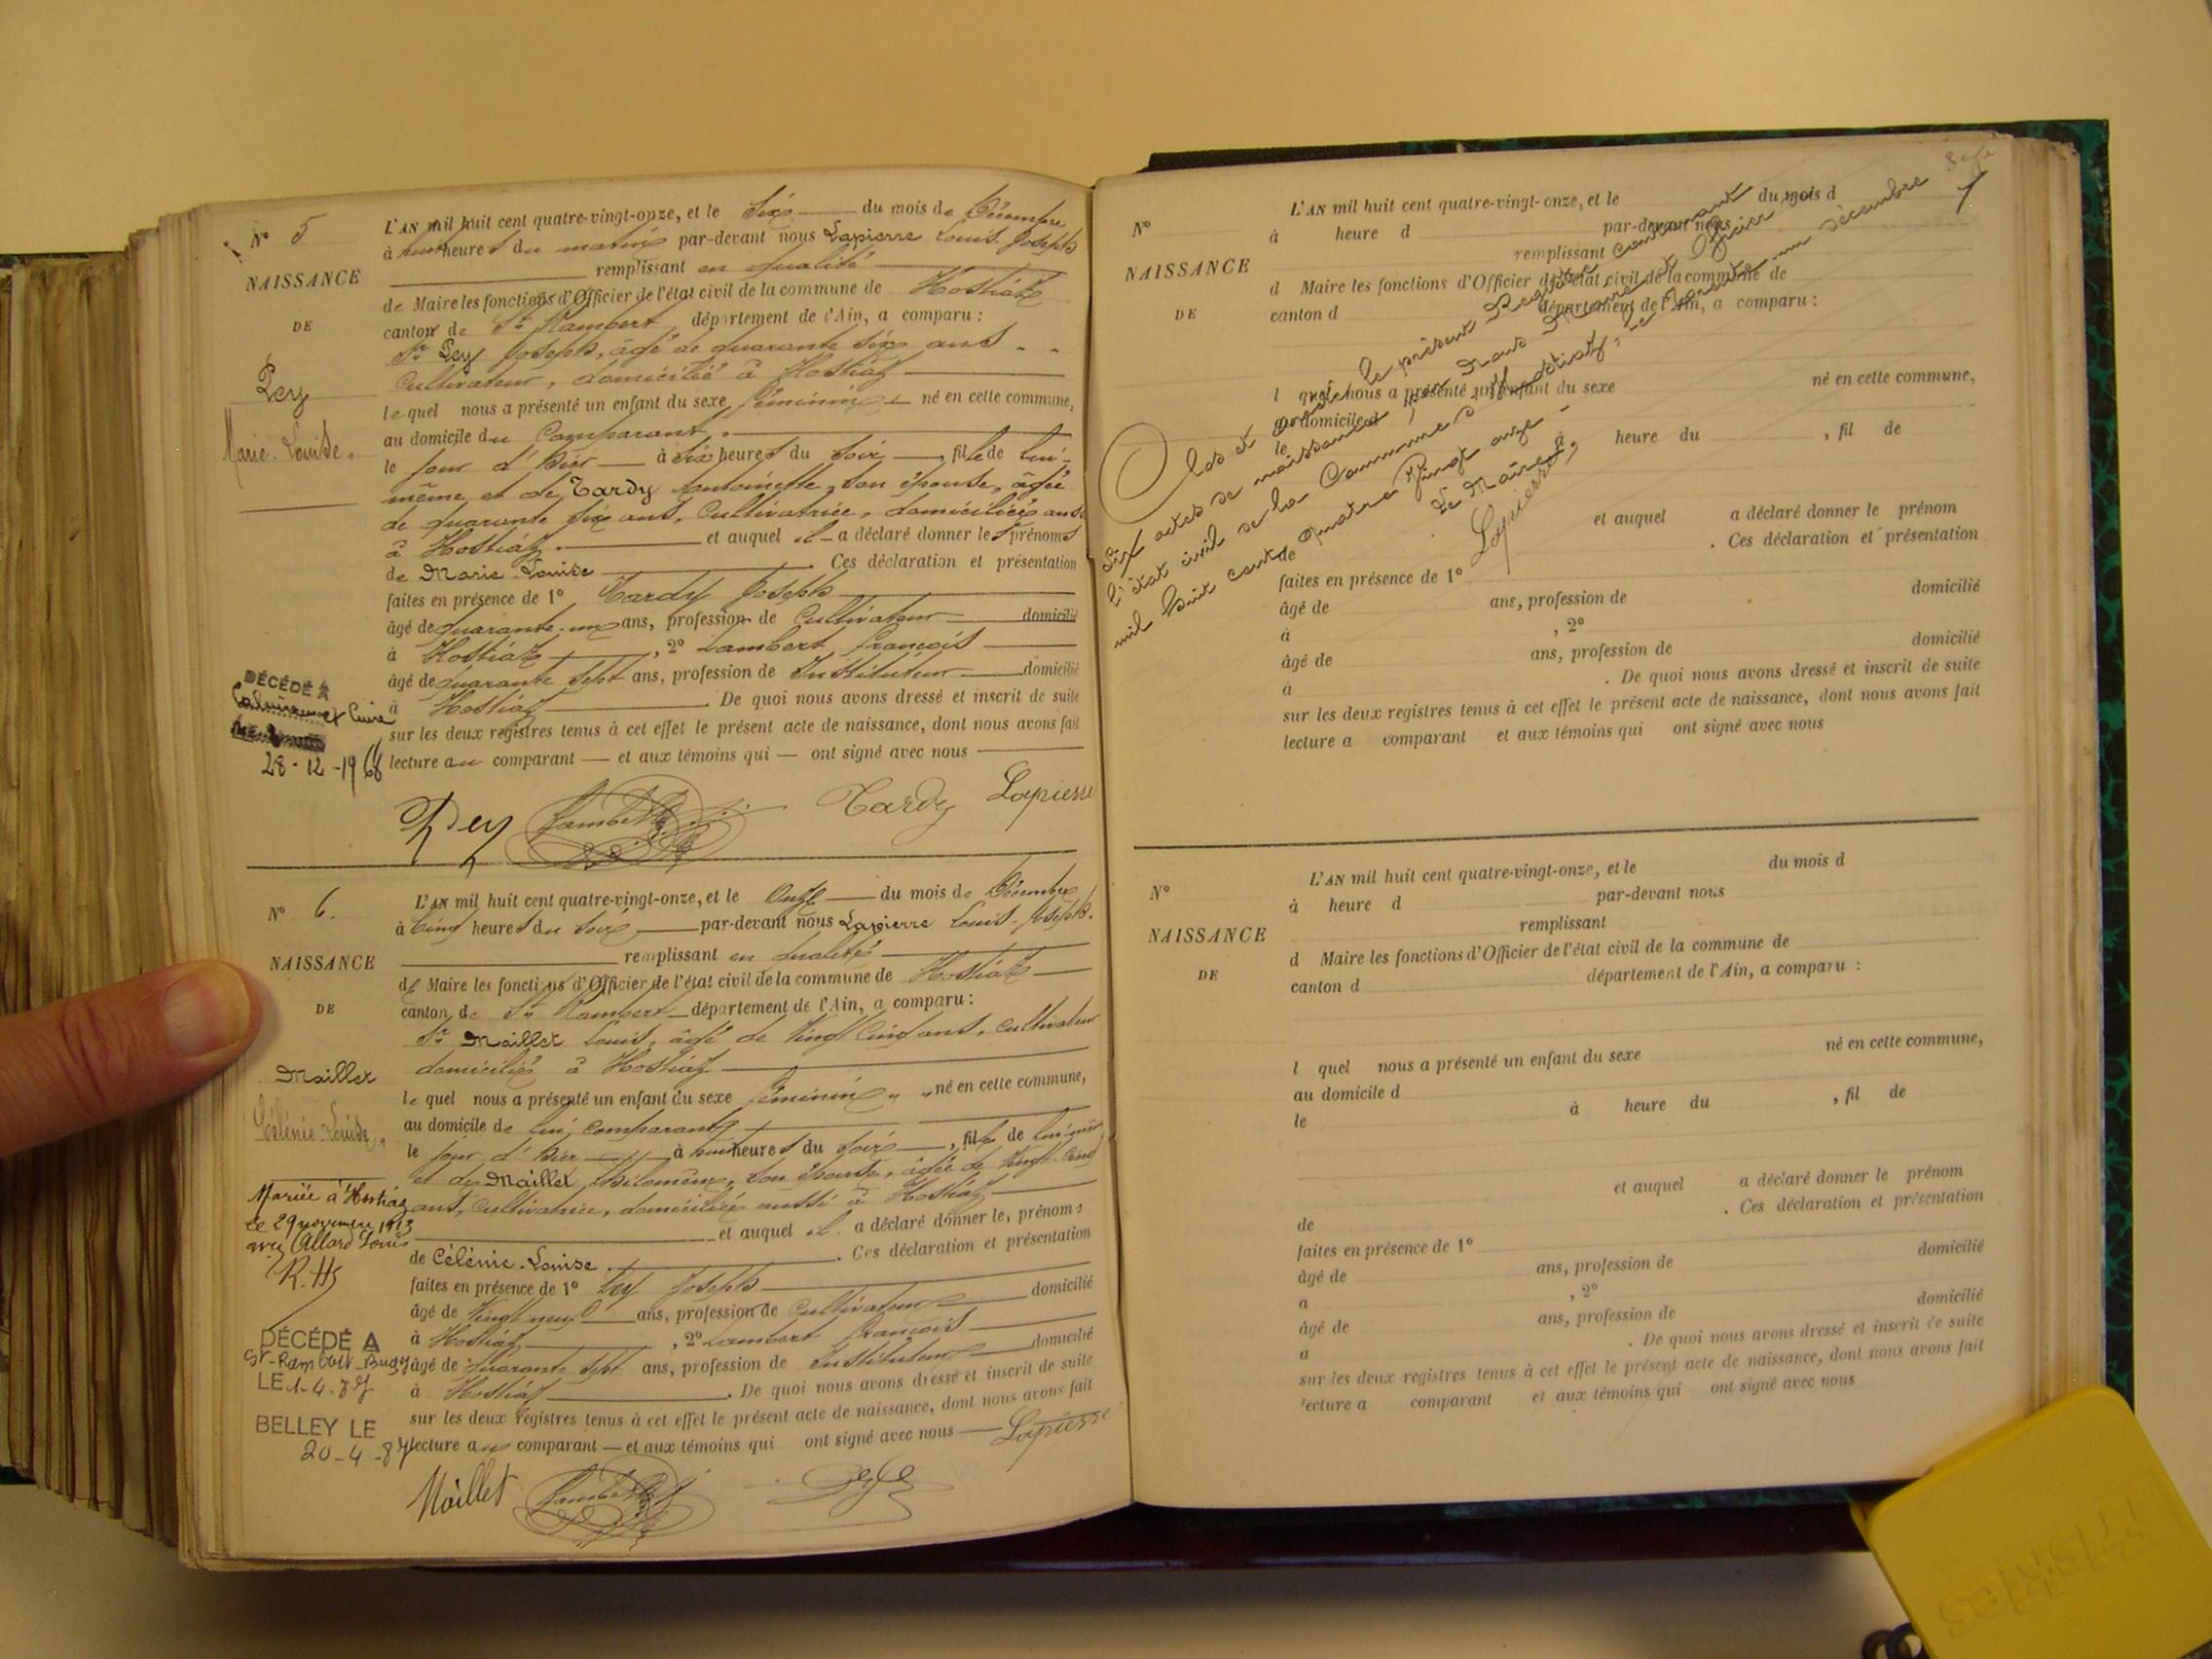 N° 5
NAISSANCE
DE
Pey
Marie-Louise.
L'AN mil huit cent quatre-vingt-onze, et le six du mois de Décembre
à huit heures du matin par-devant nous Lapierre Louis Joseph
remplissant en qualité
de Maire les fonctions d'Officier de l'état civil de la commune de Hostiaz
canton de St Rambert, département de l'Ain, a comparu :
Sr Pey Joseph, âgé de quarante six ans
Cultivateur, domicilié à Hostiaz
lequel nous a présenté un enfant du sexe féminin né en cette commune,
au domicile du Comparant.
le jour d'hier à six heures du soir, fille de lui-
même et de Tardy Antoinette, son épouse, âgée
de quarante six ans, Cultivatrice, domiciliée aussi
à Hostiaz. et auquel il a déclaré donner les prénoms
de Marie-Louise. Ces déclaration et présentation
faites en présence de 1° Tardy Joseph
âgé de quarante-un ans, profession de Cultivateur domicilié
à Hostiaz, 2° Lambert François
âgé de quarante sept ans, profession de Instituteur domicilié
à Hostiaz. De quoi nous avons dressé et inscrit de suite
sur les deux registres tenus à cet effet le présent acte de naissance, dont nous avons fait
lecture au comparant et aux témoins qui ont signé avec nous
DÉCÉDÉ A
Caluire et Cuire
28-12-1968
Pey Lambert Tardy Lapierre
N° 6.
NAISSANCE
DE
Maillet
Célénie-Louise.
L'AN mil huit cent quatre-vingt-onze, et le Onze du mois de Décembre
à Cinq heures du soir par-devant nous Lapierre Louis-Joseph.
remplissant en qualité
de Maire les fonctions d'Officier de l'état civil de la commune de Hostiaz
canton de St Rambert département de l'Ain, a comparu :
Sr Maillet Louis, âgé de Vingt Cinq ans, Cultivateur
domicilié à Hostiaz
lequel nous a présenté un enfant du sexe féminin né en cette commune,
au domicile de lui, Comparant
le jour d'hier à huit heures du soir, fille de lui-même
et de Maillet Philomène, son épouse, âgée de Vingt-Cinq
ans, Cultivatrice, domiciliée aussi à Hostiaz
et auquel il a déclaré donner les prénoms
de Célénie-Louise. Ces déclaration et présentation
faites en présence de 1° Pey Joseph
âgé de Vingt neuf ans, profession de Cultivateur domicilié
à Hostiaz, 2° Lambert François
âgé de quarante sept ans, profession de Instituteur domicilié
à Hostiaz. De quoi nous avons dressé et inscrit de suite
sur les deux registres tenus à cet effet le présent acte de naissance, dont nous avons fait
lecture au comparant et aux témoins qui ont signé avec nous Lapierre
Mariée à Hostiaz
le 29 novembre 1913
avec Allard Louis
DÉCÉDÉ A
St-Rambert-Bugey
LE 1-4-87
BELLEY LE
20-4-87
Maillet Lambert Pey
N°
NAISSANCE
DE
L'AN mil huit cent quatre-vingt-onze, et le du mois d
à heure d par-devant nous
remplissant
d Maire les fonctions d'Officier de l'état civil de la commune de
canton d département de l'Ain, a comparu :
l quel nous a présenté un enfant du sexe né en cette commune,
au domicile d
le à heure du , fil de
et auquel a déclaré donner le prénom
de . Ces déclaration et présentation
faites en présence de 1°
âgé de ans, profession de domicilié
à , 2°
âgé de ans, profession de domicilié
à . De quoi nous avons dressé et inscrit de suite
sur les deux registres tenus à cet effet le présent acte de naissance, dont nous avons fait
lecture a comparant et aux témoins qui ont signé avec nous
Clos et arrêté le présent Registre contenant
Six actes de naissances, par Nous Maire et Officier de
l'état civil de la Commune d'Hostiaz, le trente un décembre
mil huit cent quatre vingt onze
Le Maire,
Lapierre
N°
NAISSANCE
DE
L'AN mil huit cent quatre-vingt-onze, et le du mois d
à heure d par-devant nous
remplissant
d Maire les fonctions d'Officier de l'état civil de la commune de
canton d département de l'Ain, a comparu :
l quel nous a présenté un enfant du sexe né en cette commune,
au domicile d
le à heure du , fil de
et auquel a déclaré donner le prénom
de . Ces déclaration et présentation
faites en présence de 1°
âgé de ans, profession de domicilié
a , 2°
âgé de ans, profession de domicilié
a . De quoi nous avons dressé et inscrit de suite
sur les deux registres tenus à cet effet le présent acte de naissance, dont nous avons fait
lecture a comparant et aux témoins qui ont signé avec nous